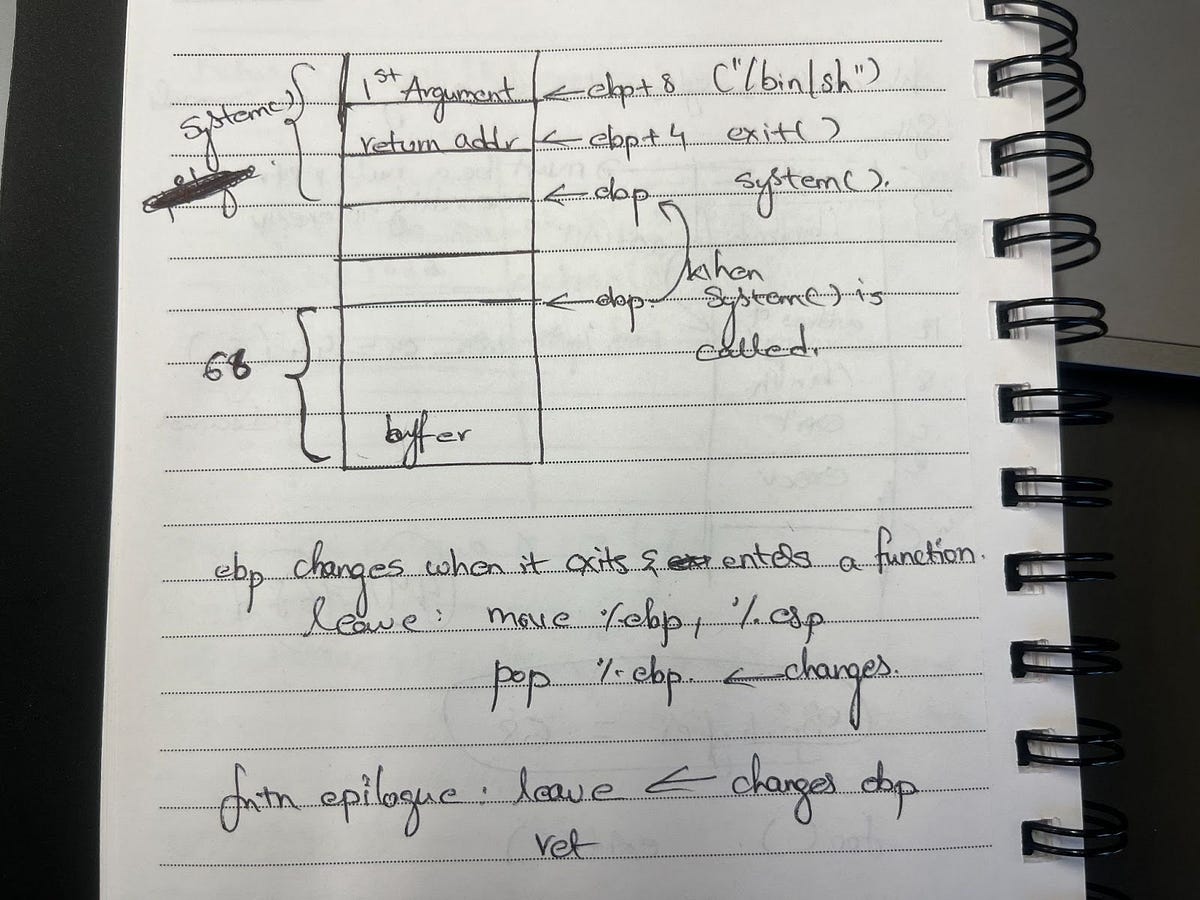 1st Argument ← ebp+8 ("/bin/sh")
system()
return addr ← ebp+4 exit()
← ebp system().
when
← ebp system() is
called.
68
buffer
ebp changes when it exits & enters a function.
leave: move %ebp, %esp
pop %ebp. ← changes.
fntn epilogue: leave ← changes ebp
ret